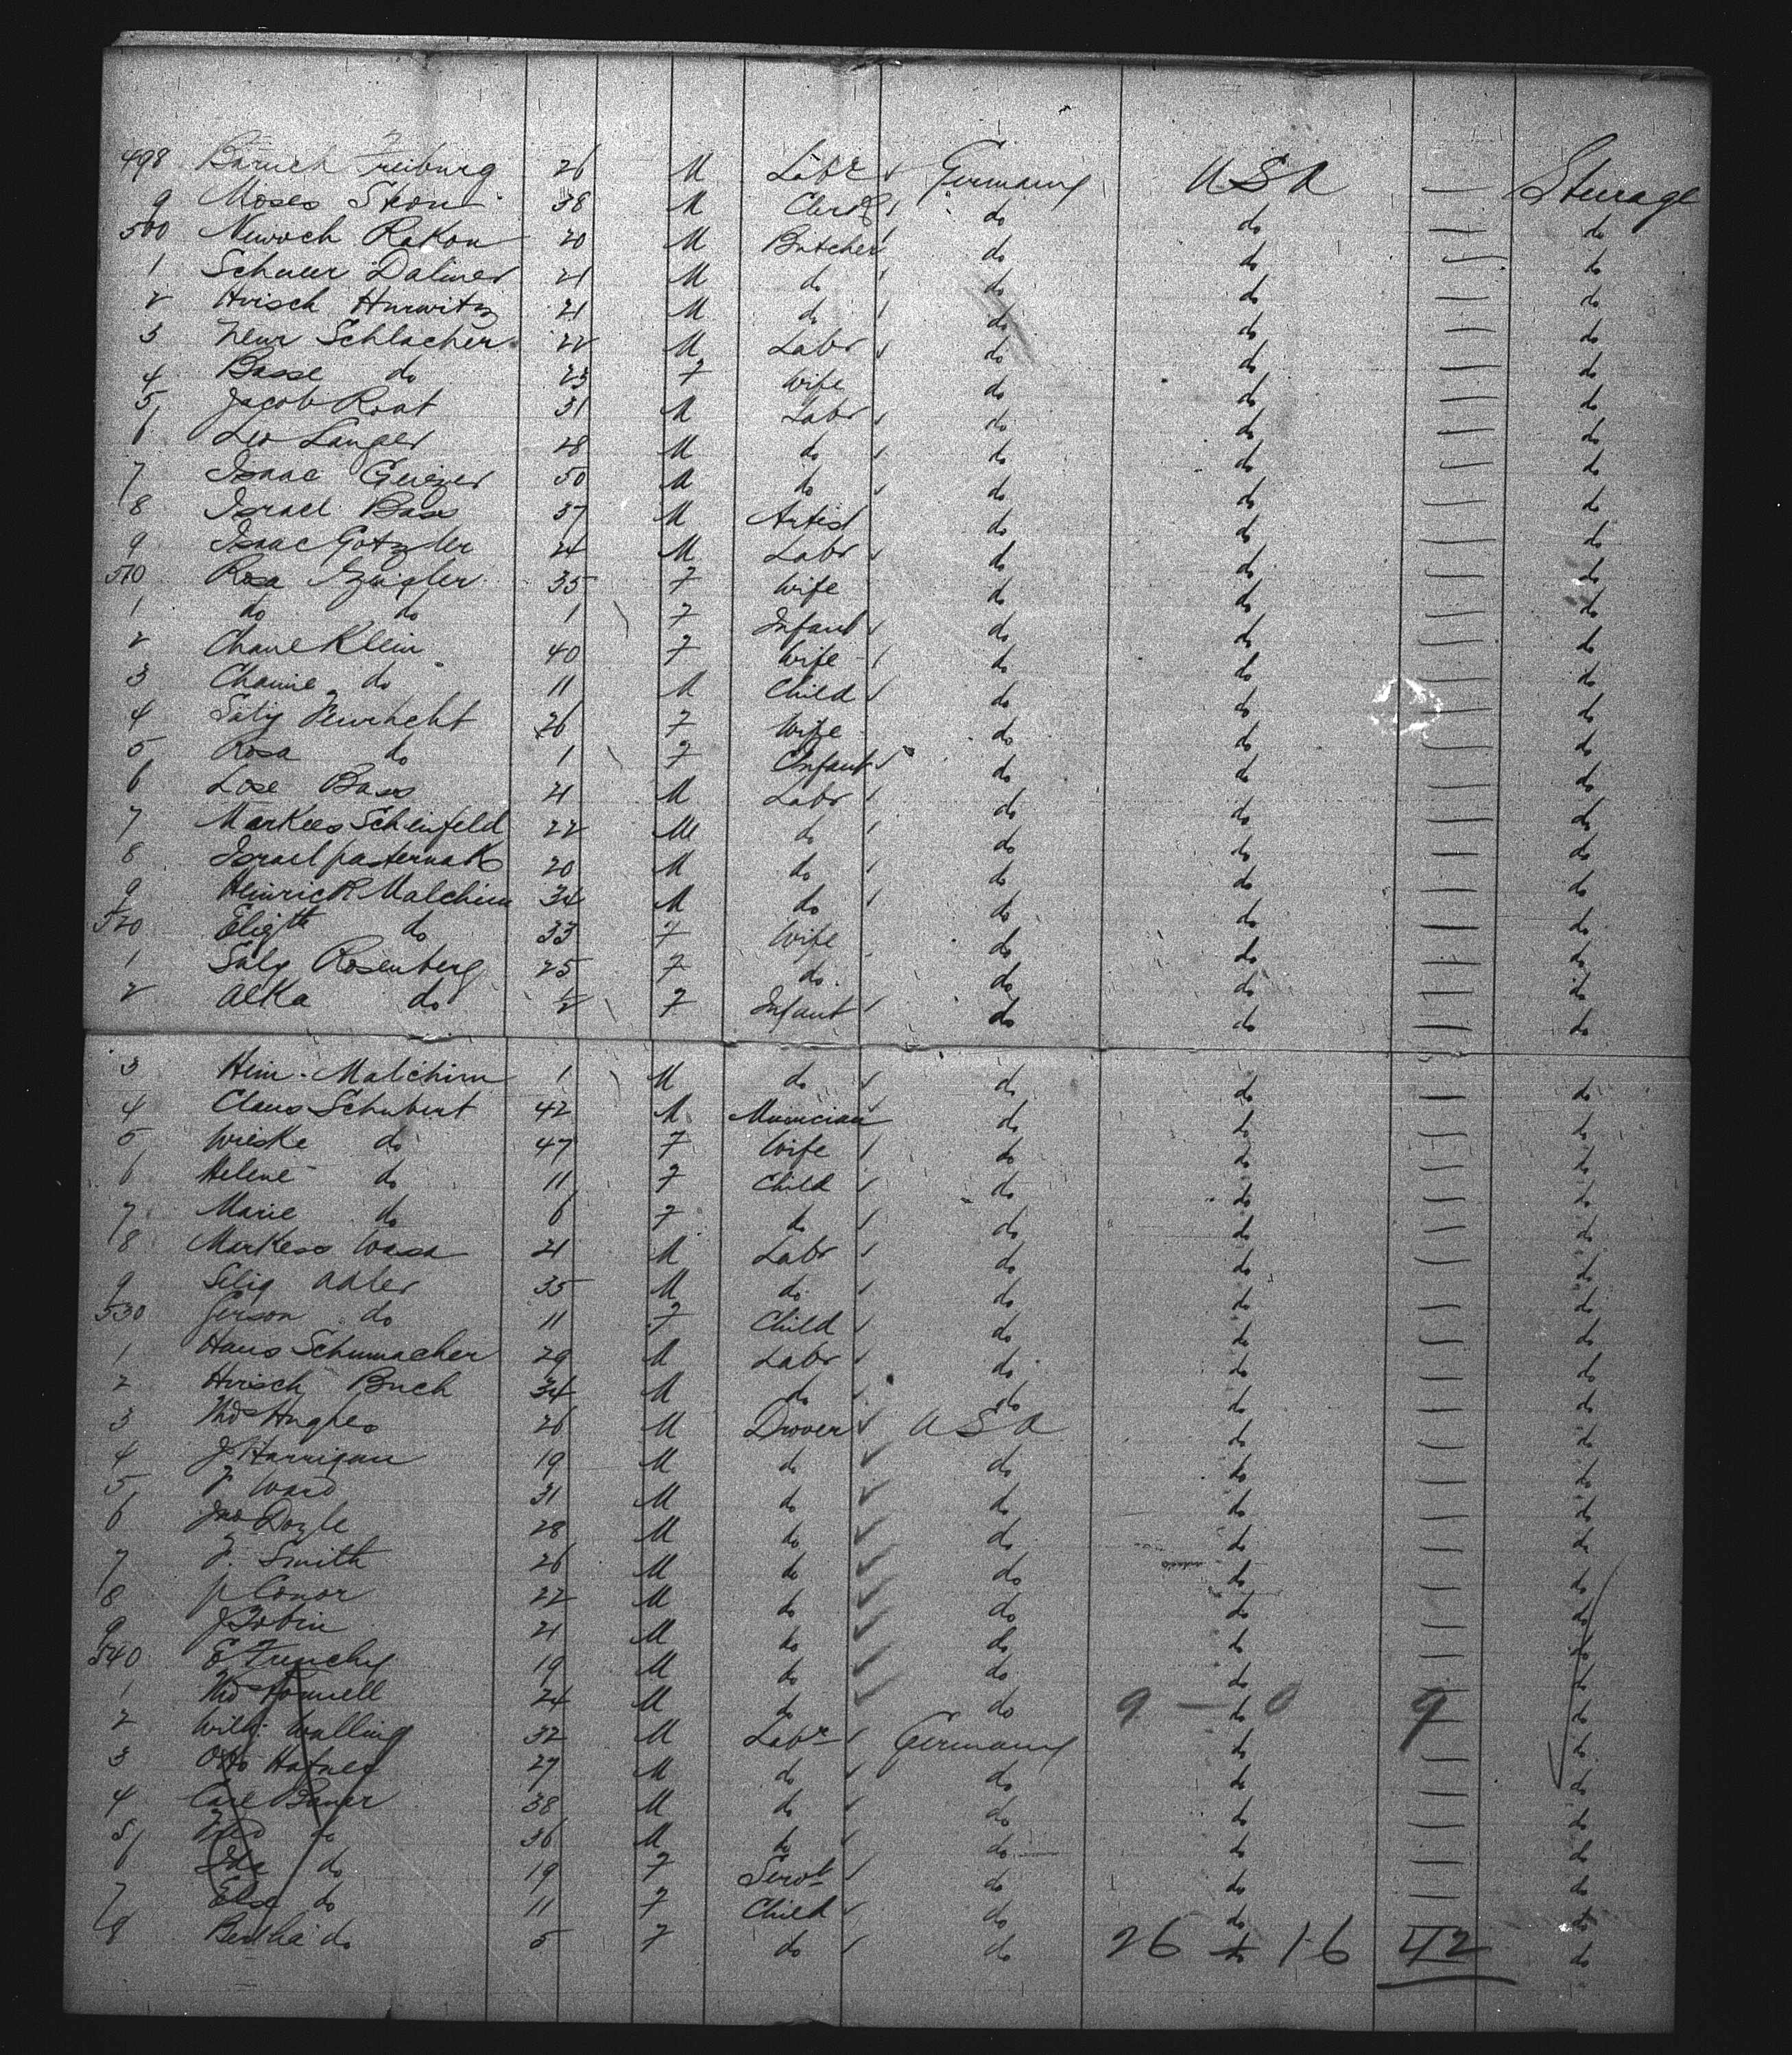 498 Baruch Freiburg 26 M Labr Germany USA — Steerage
9 Moses Stron 38 M Clerk do do — do
500 Newoch Rakon 20 M Butcher do do — do
1 Schneer Dalmer 21 M do do do — do
2 Hirsch Hurwitz 21 M do do do — do
3 Schlacher 22 M Labr do do — do
4 Basse do 23 F Wife do do — do
5 Jacob Roat 31 M Labr do do — do
6 Leo Langer 28 M do do do — do
7 Isaac 50 M do do do — do
8 Israel Bass 37 M Artist do do — do
9 Isaac Gotzler 24 M Labr do do — do
510 Rosa 35 F Wife do do — do
1 do do 1 F Infant do do — do
2 Chane Klein 40 F Wife do do — do
3 Channe do 11 M Child do do — do
4 26 F Wife do do — do
5 Rosa do 1 F Infant do do — do
6 Lose Bass 21 M Labr do do — do
7 Markees Scheinfeld 22 M do do do — do
8 Israel Pasternak 20 M do do do — do
9 Heinrick Malchim 34 M do do do — do
520 Eligth do 33 F Wife do do — do
1 Saly Rosenberg 25 F do do do — do
2 Alka do 1/2 F Infant do do — do
3 Hein. Malichim 1 M do do do — do
4 Claus Schubert 42 M Musician do do — do
5 Wieske do 47 F Wife do do — do
6 Helene do 11 F Child do do — do
7 Marie do 6 F do do do — do
8 Markess Wasa 21 M Labr do do — do
9 Selig Adler 35 M do do do — do
530 Gerson do 11 F Child do do — do
1 Hans Schumacher 29 M Labr do do — do
2 Hirsch Buch 34 M do do do — do
3 Thos Hughes 26 M Drover USA do — do
4 J Harrigan 19 M do do do — do
5 J Ward 31 M do do do — do
6 Jas Doyle 28 M do do do — do
7 J. Smith 26 M do do do — do
8 P Conor 22 M do do do — do
9 J Tobin 21 M do do do — do
540 E Frenchy 19 M do do do — do
1 Thos 24 M do do 9 — do 0 9 — do
2 Will. Walling 32 M Labr Germany do — do
3 Otto Hafner 27 M do do do — do
4 Carl Bauer 38 M do do do — do
5 do 36 M do do do — do
6 Ida do 19 F Servt do do — do
7 Else do 11 F Child do do — do
8 Bertha do 5 F do do 26 do 16 42 do